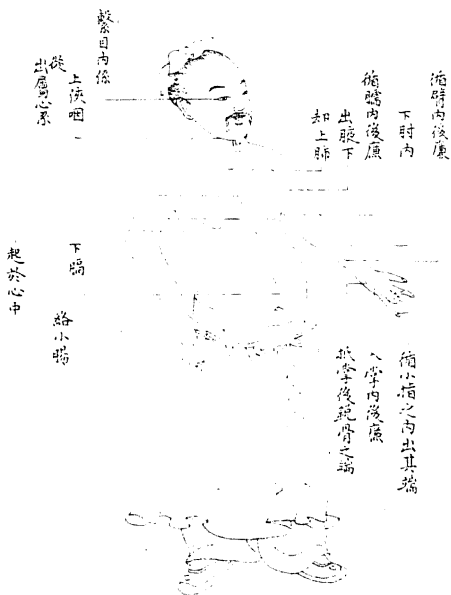 循臂內後廉
下肘內
循臑內後廉
出腋下
却上肺
繫目內係
上俠咽
從
出屬心系
下膈
絡小腸
起於心中
循小指之內出其端
入掌內後廉
抵掌後銳骨之端